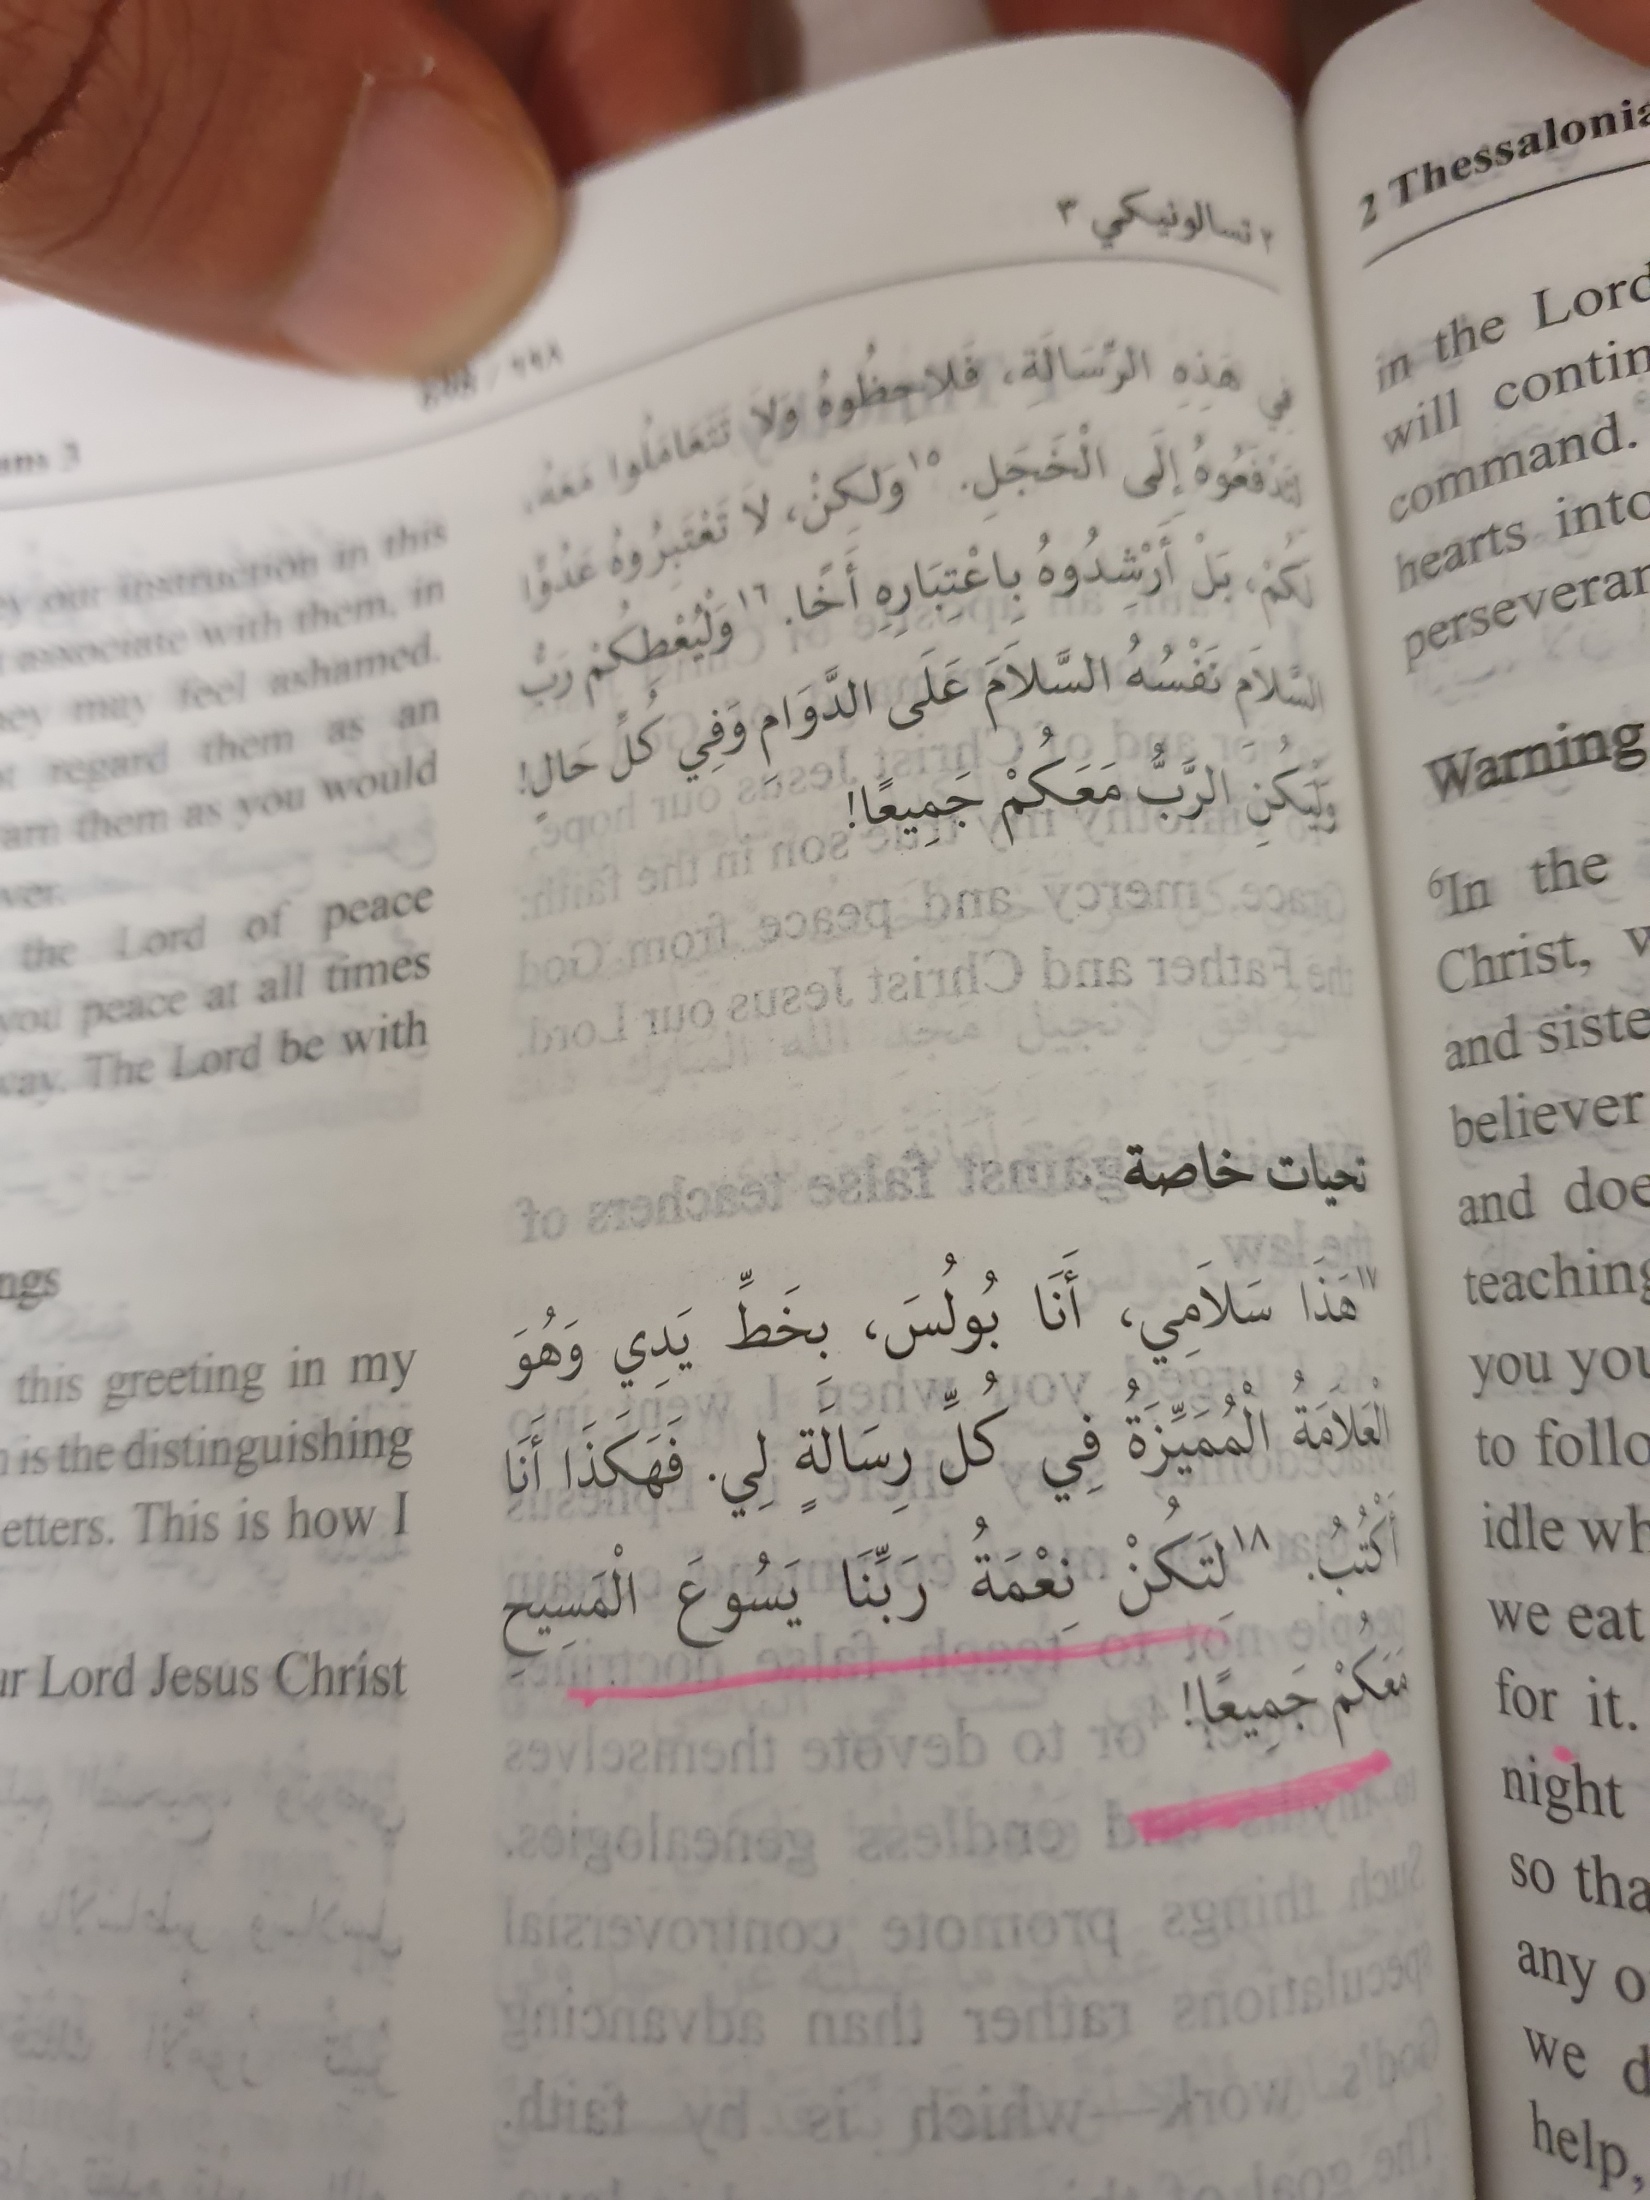 ٢ تسالونيكي ٣
٦٩٨
فِي هَذِهِ الرِّسَالَةِ، فَلاحِظُوهُ وَلاَ تَتَعَامَلُوا مَعَهُ،
إِلَى الْخَجَلِ. ١٥وَلَكِنْ، لاَ تَعْتَبِرُوهُ عَدُوًّا
لَكُمْ، بَلْ أَرْشِدُوهُ بِاعْتِبَارِهِ أَخًا. ١٦وَلْيُعْطِكُمْ رَبُّ
السَّلاَمِ نَفْسُهُ السَّلاَمَ عَلَى الدَّوَامِ وَفِي كُلِّ حَالٍ!
وَلْيَكُنِ الرَّبُّ مَعَكُمْ جَمِيعًا!
تحيات خاصة
١٧هَذَا سَلاَمِي، أَنَا بُولُسَ، بِخَطِّ يَدِي وَهُوَ
الْعَلاَمَةُ الْمُمَيِّزَةُ فِي كُلِّ رِسَالَةٍ لِي. فَهَكَذَا أَنَا
أَكْتُبُ. ١٨لِتَكُنْ نِعْمَةُ رَبِّنَا يَسُوعَ الْمَسِيحِ
مَعَكُمْ جَمِيعًا!
our instruction in this
associate with them, in
may feel ashamed.
regard them as an
them as you would
the Lord of peace
you peace at all times
way. The Lord be with
this greeting in my
is the distinguishing
letters. This is how I
Lord Jesus Christ
2 Thessalonia
in the Lord
will contin
command.
hearts into
perseveran
Warning
6In the
Christ, w
and siste
believer
and doe
teaching
you you
to follo
idle wh
we eat
for it.
night
so tha
any o
we d
help,